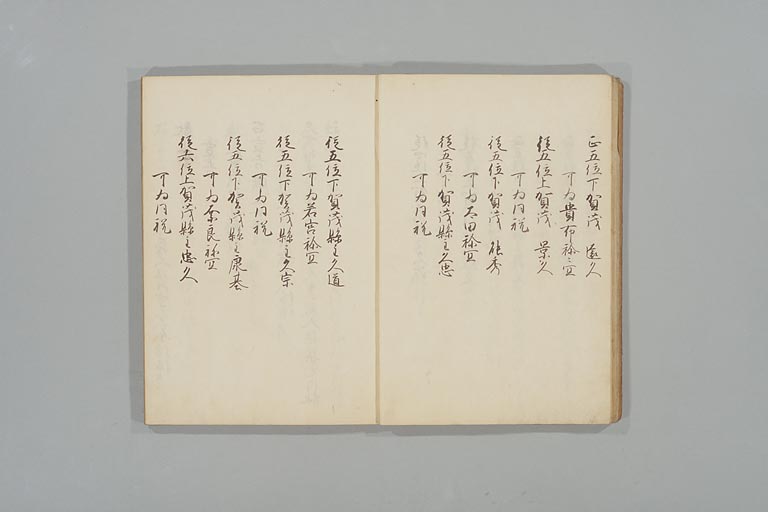 正五位下賀茂 遠久
可為貴布祢〻宜
従五位上賀茂 景久
可為同祝
従五位下賀茂 能秀
可為太田祢宜
従五位下賀茂縣主久忠
可為同祝
従五位下賀茂縣主久道
可為若宮祢宜
従五位下賀茂縣主久宗
可為同祝
従五位下賀茂縣主康基
可為奈良祢宜
従六位上賀茂縣主忠久
可為同祝